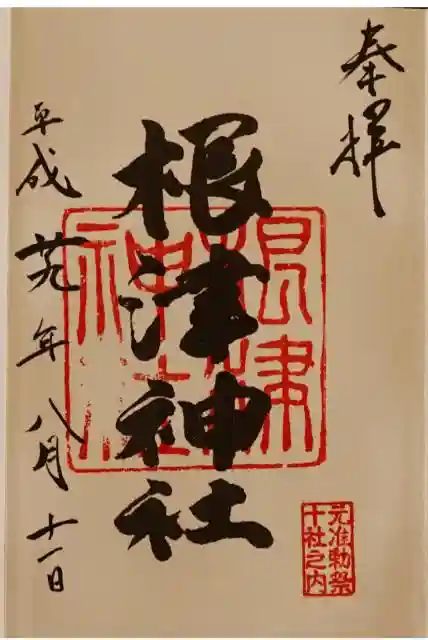 奉拝
根津神社
根津神社
平成廿九年八月十一日
元准勅祭
十社之内